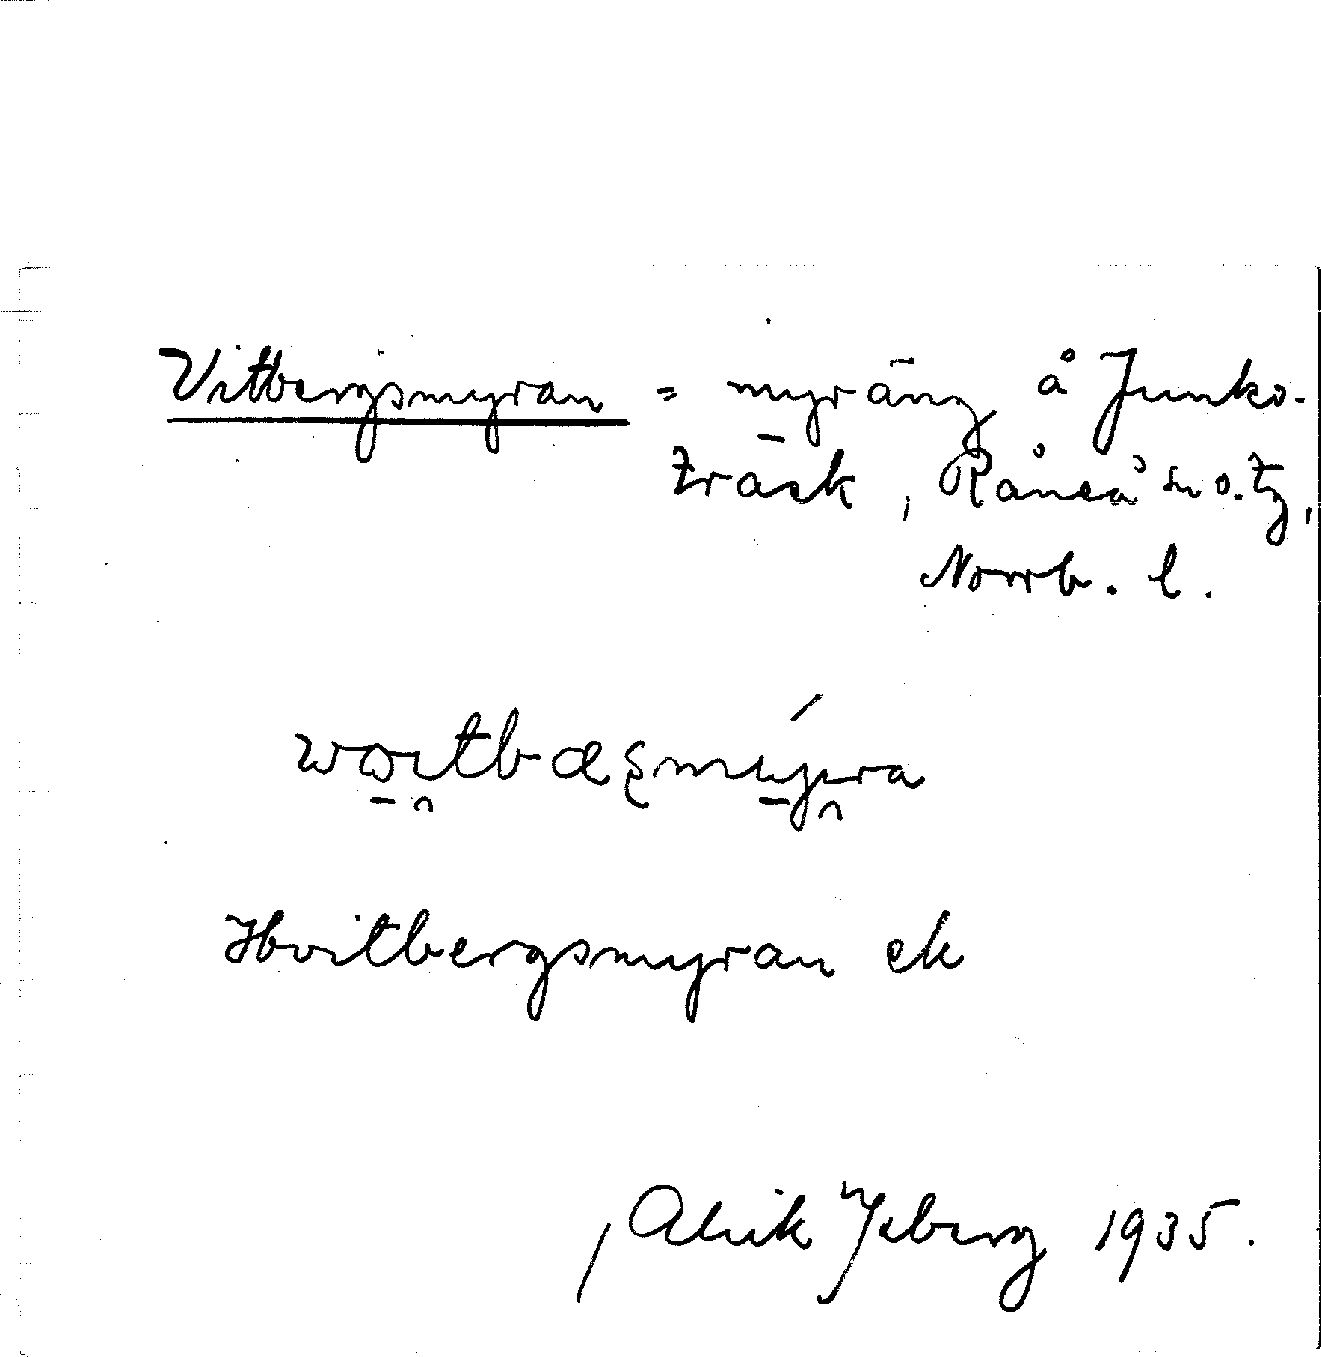 Vitbergsmyran = myräng å Junko-
träsk, Råneå sn o. tg,
Norrb. l.
Hvitbergsmyran ek
Alrik Ysberg 1935.